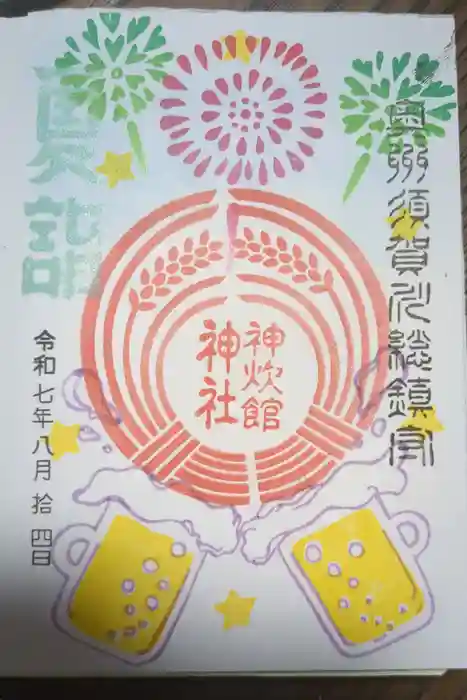 奥州須賀川総鎮守
神炊館
神社
夏詣
令和七年八月拾四日